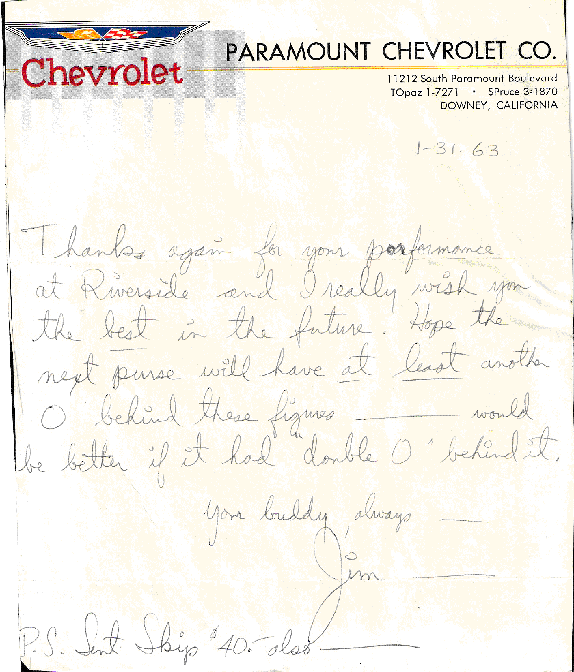 Chevrolet
PARAMOUNT CHEVROLET CO.
11212 South Paramount Boulevard
TOpaz 1-7271 • SPruce 3-1870
DOWNEY, CALIFORNIA
1-31-63
Thanks again for your performance
at Riverside and I really wish you
the best in the future. Hope the
next purse will have at least another
O" behind these figures — would
be better if it had "double O" behind it.
Your buddy always —
Jim —
P.S. Sent Skip $40.- also —